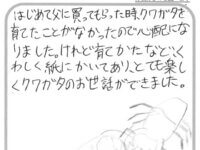 はじめて父に買ってもらった時、クワガタを
育てたことがなかったので心配にな
りました。けれど育てかたなど、く
わしく紙にかいてあり、とても楽し
くクワガタのお世話ができました。